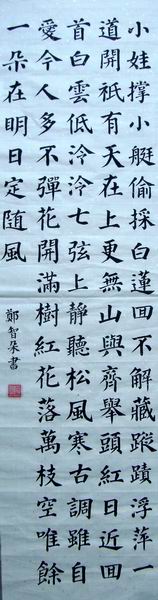 小娃撑小艇偷採白蓮回不解藏蹤蹟浮萍一
道開祇有天在上更無山與齊舉頭紅日近回
首白雲低泠泠七弦上靜聽松風寒古調雖自
愛今人多不彈花開滿樹紅花落萬枝空唯餘
一朵在明日定隨風
鄭智朵書